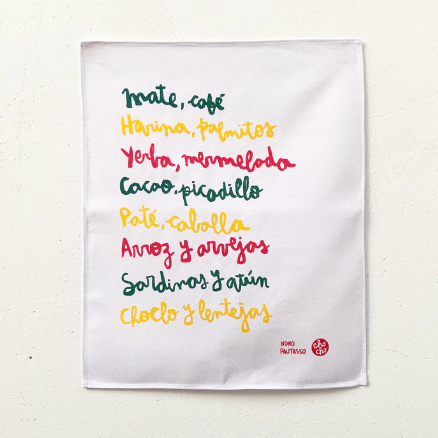 Mate, café
Harina, palmitos
Yerba, mermelada
Cacao, picadillo
Paté, caballa
Arroz y arvejas
Sardinas y atún
Choclo y lentejas
NONO
PAUTASSO
cho
cho